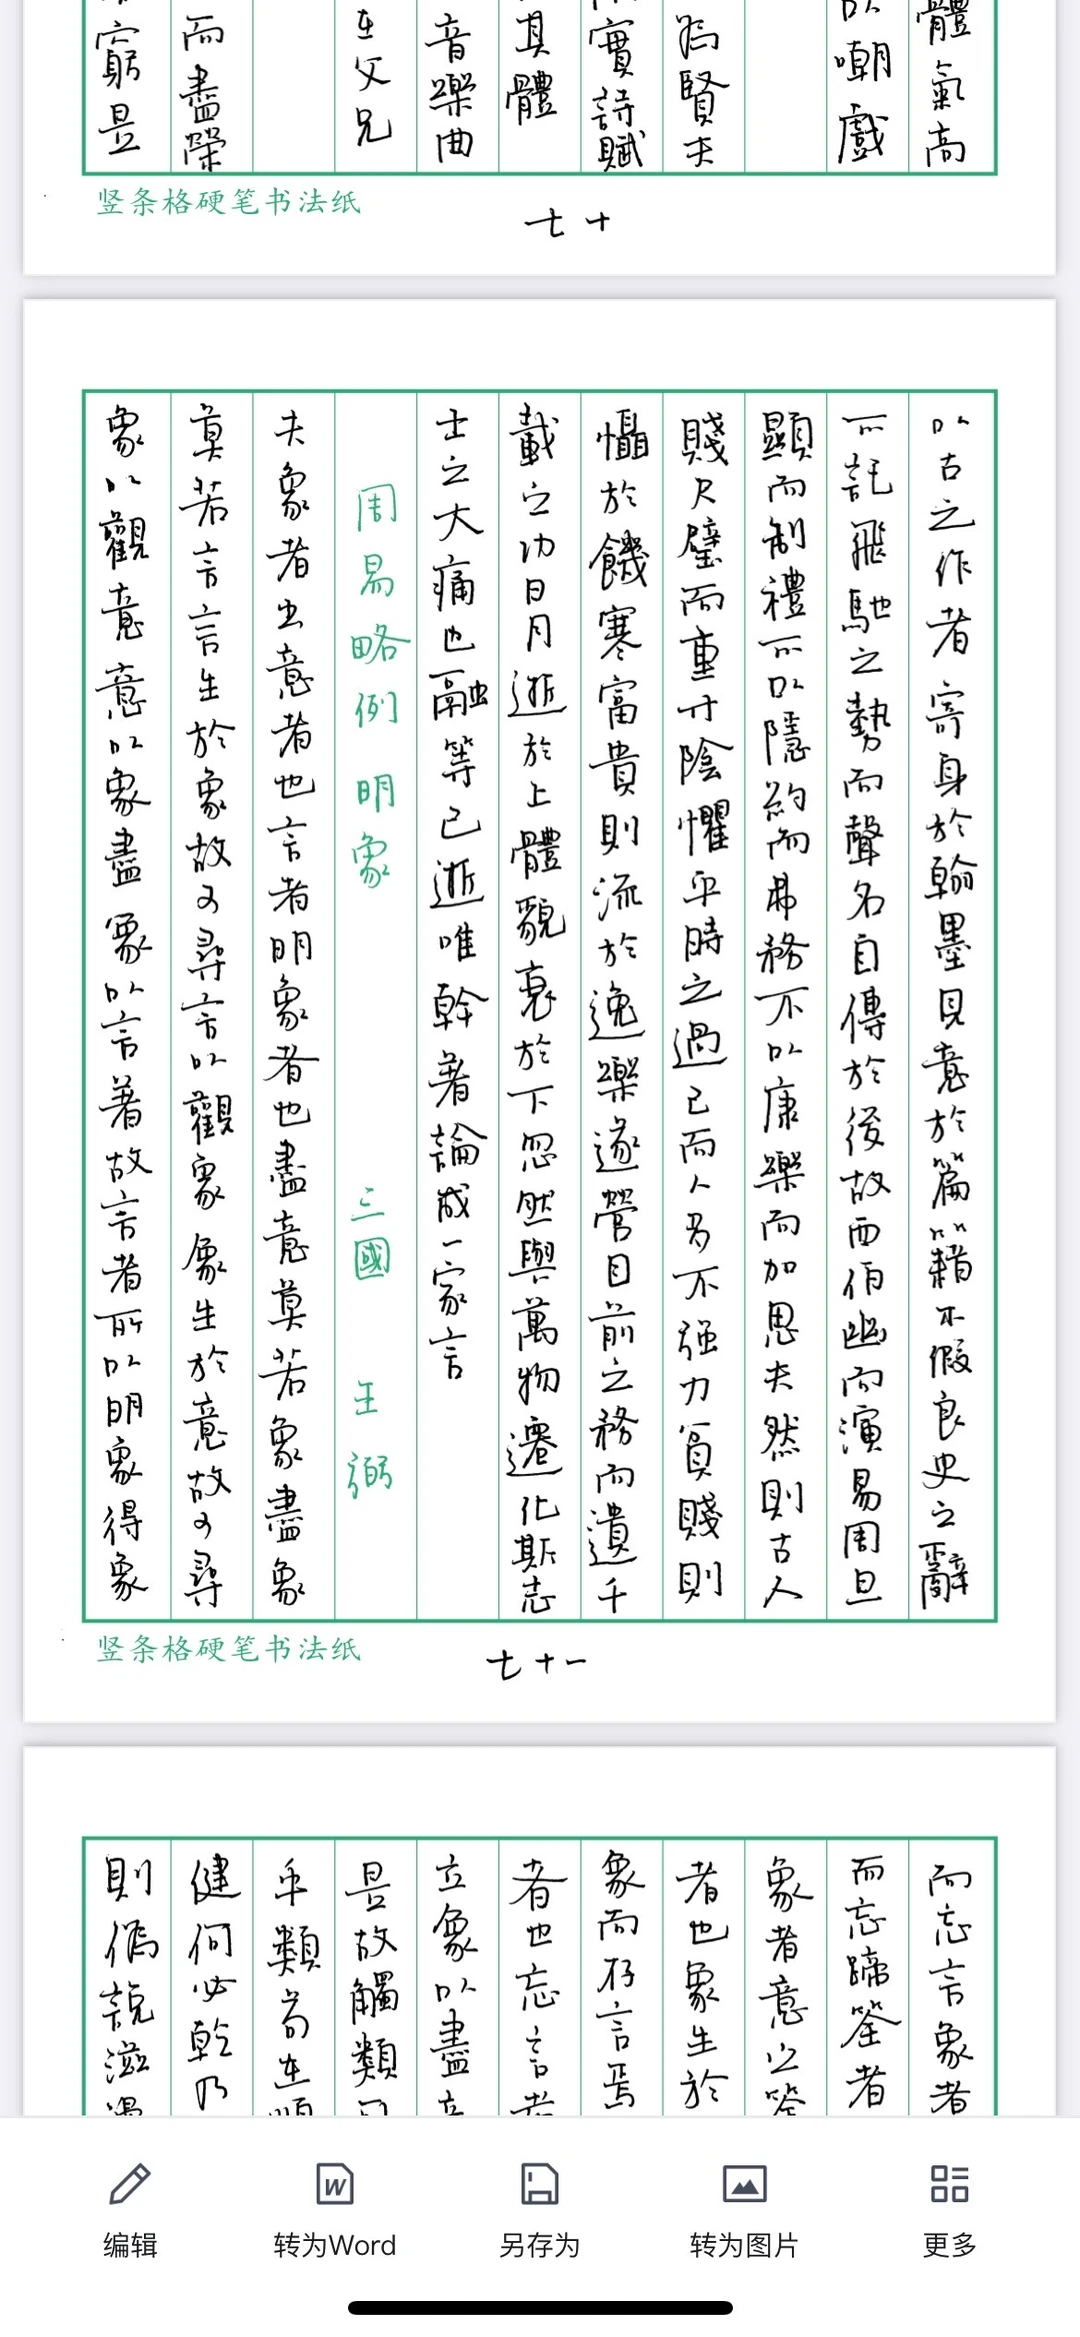 體氣高
以嘲戲
為賢夫
實詩賦
其體
音樂曲
在父兄
而盡榮
窮是
竖条格硬笔书法纸
七十
以古之作者寄身於翰墨見意於篇籍不假良史之辭
不託飛馳之勢而聲名自傳於後故西伯幽而演易周旦
顯而制禮不以隱約而弗務不以康樂而加思夫然則古人
賤尺璧而重寸陰懼乎時之過已而人多不强力貧賤則
懾於饑寒富貴則流於逸樂遂營目前之務而遺千
載之功日月逝於上體貌衰於下忽然與萬物遷化斯志
士之大痛也融等已逝唯幹著論成一家言
周易略例 明象 三國 王弼
夫象者出意者也言者明象者也盡意莫若象盡象
莫若言言生於象故可尋言以觀象象生於意故可尋
象以觀意意以象盡象以言著故言者所以明象得象
竖条格硬笔书法纸
七十一
而忘言象者
而忘蹄筌者
象者意之筌
者也象生於
象而存言焉
者也忘言者
立象以盡意
是故觸類可
乎類苟在順
健何必乾乃
則僞說滋漫
编辑
转为Word
另存为
转为图片
更多